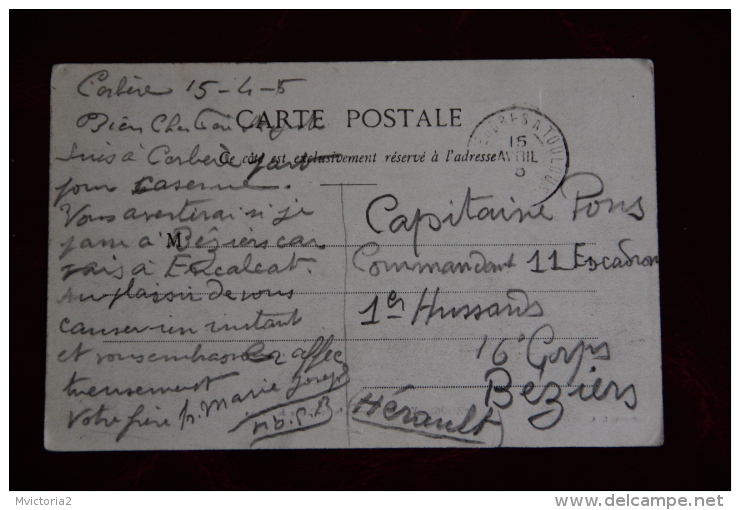 Corbère 15-4-5
CARTE POSTALE
Bien Cher
Suis à Corbère
Ce côté est exclusivement réservé à l'adresse
pour caserne.
Vous avertirai si je
passe à Béziers car
M
vais à Encalcat.
Au plaisir de vous
causer un instant
et vous embrasser affec
tueusement
Votre frère fr. Marie Joseph
A TOULOUSE
15
AVRIL
5
Capitaine Pons
Commandant 11 Escadron
1er Hussards
16e Corps
Béziers
Hérault
Mvictoria2
www.delcampe.net